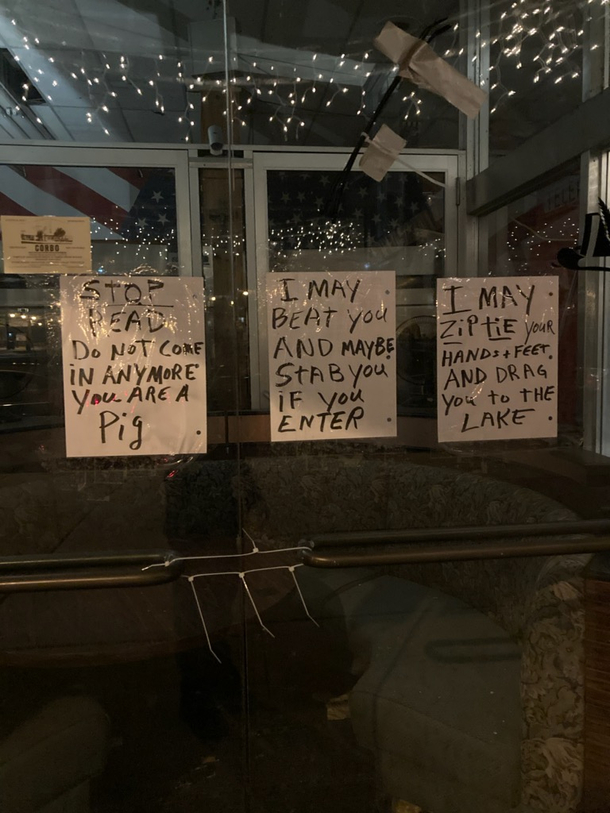 CONDO
STOP
READ
DO NOT COME
IN ANYMORE
YOU ARE A
Pig
I MAY
BEAT YOU
AND MAYBE
STAB YOU
iF YOU
ENTER
I MAY
ZiPTiE YOUR
HANDS + FEET.
AND DRAG
YOU TO THE
LAKE